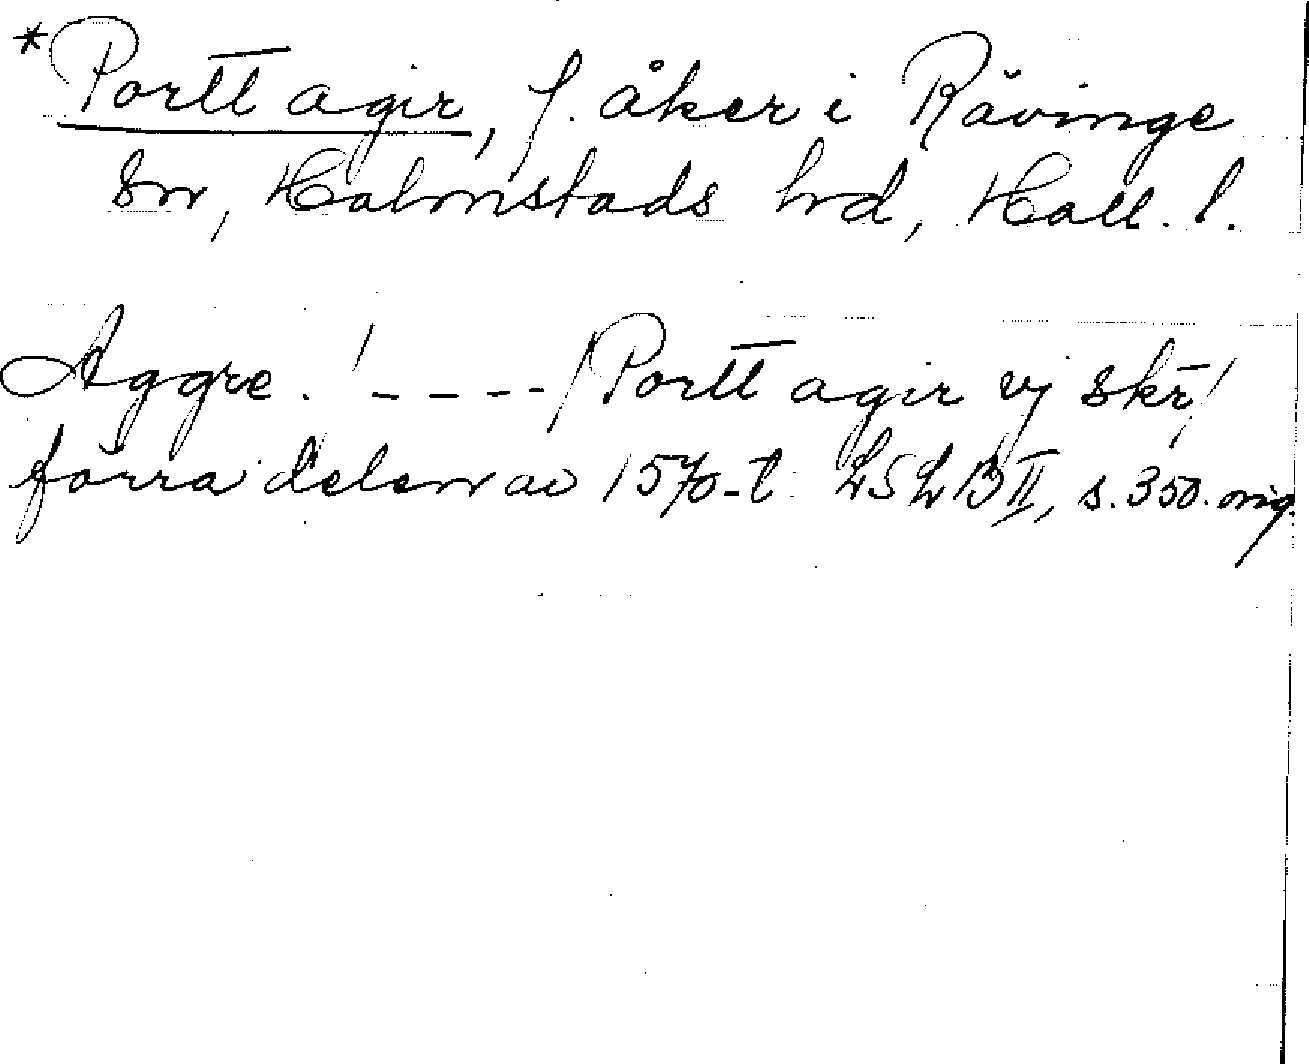 *Portt agir, f. åker i Rävinge
sn, Halmstads hd, Hall. l.
Aggre. ! ---- / Portt agir vj skr /
förra delen av 1570-t. LSLB II, s. 350. orig.